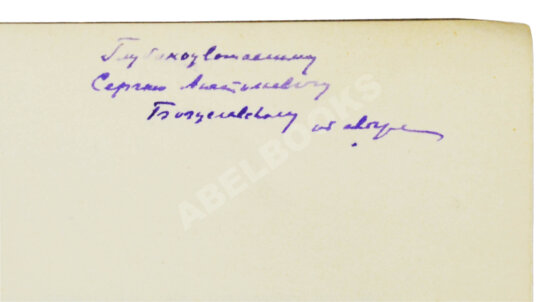 Глубокоуважаемому
Сергею Анатольевичу
Богуславскому от автора
ABELBOOKS